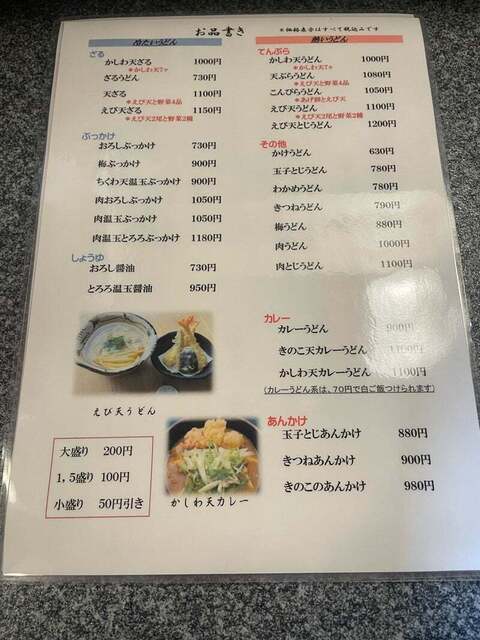 お品書き
※価格表示はすべて税込みです
冷たいうどん
ざる
かしわ天ざる 1000円
※かしわ天7ヶ
ざるうどん 730円
天ざる 1100円
※えび天と野菜4品
えび天ざる 1150円
※えび天2尾と野菜2種
ぶっかけ
おろしぶっかけ 730円
梅ぶっかけ 900円
ちくわ天温玉ぶっかけ 900円
肉おろしぶっかけ 1050円
肉温玉ぶっかけ 1050円
肉温玉とろろぶっかけ 1180円
しょうゆ
おろし醤油 730円
とろろ温玉醤油 950円
えび天うどん
大盛り 200円
1,5盛り 100円
小盛り 50円引き
熱いうどん
てんぷら
かしわ天うどん 1000円
※かしわ天7ヶ
天ぷらうどん 1080円
※えび天と野菜4品
こんぴらうどん 1050円
※あげ餅とえび天
えび天うどん 1100円
※えび天2尾と野菜2種
えび天とじうどん 1200円
その他
かけうどん 630円
玉子とじうどん 780円
わかめうどん 780円
きつねうどん 790円
梅うどん 880円
肉うどん 1000円
肉とじうどん 1100円
カレー
カレーうどん 900円
きのこ天カレーうどん 1100円
かしわ天カレーうどん 1100円
(カレーうどん系は、70円で白ご飯つけられます)
あんかけ
玉子とじあんかけ 880円
きつねあんかけ 900円
きのこのあんかけ 980円
かしわ天カレー